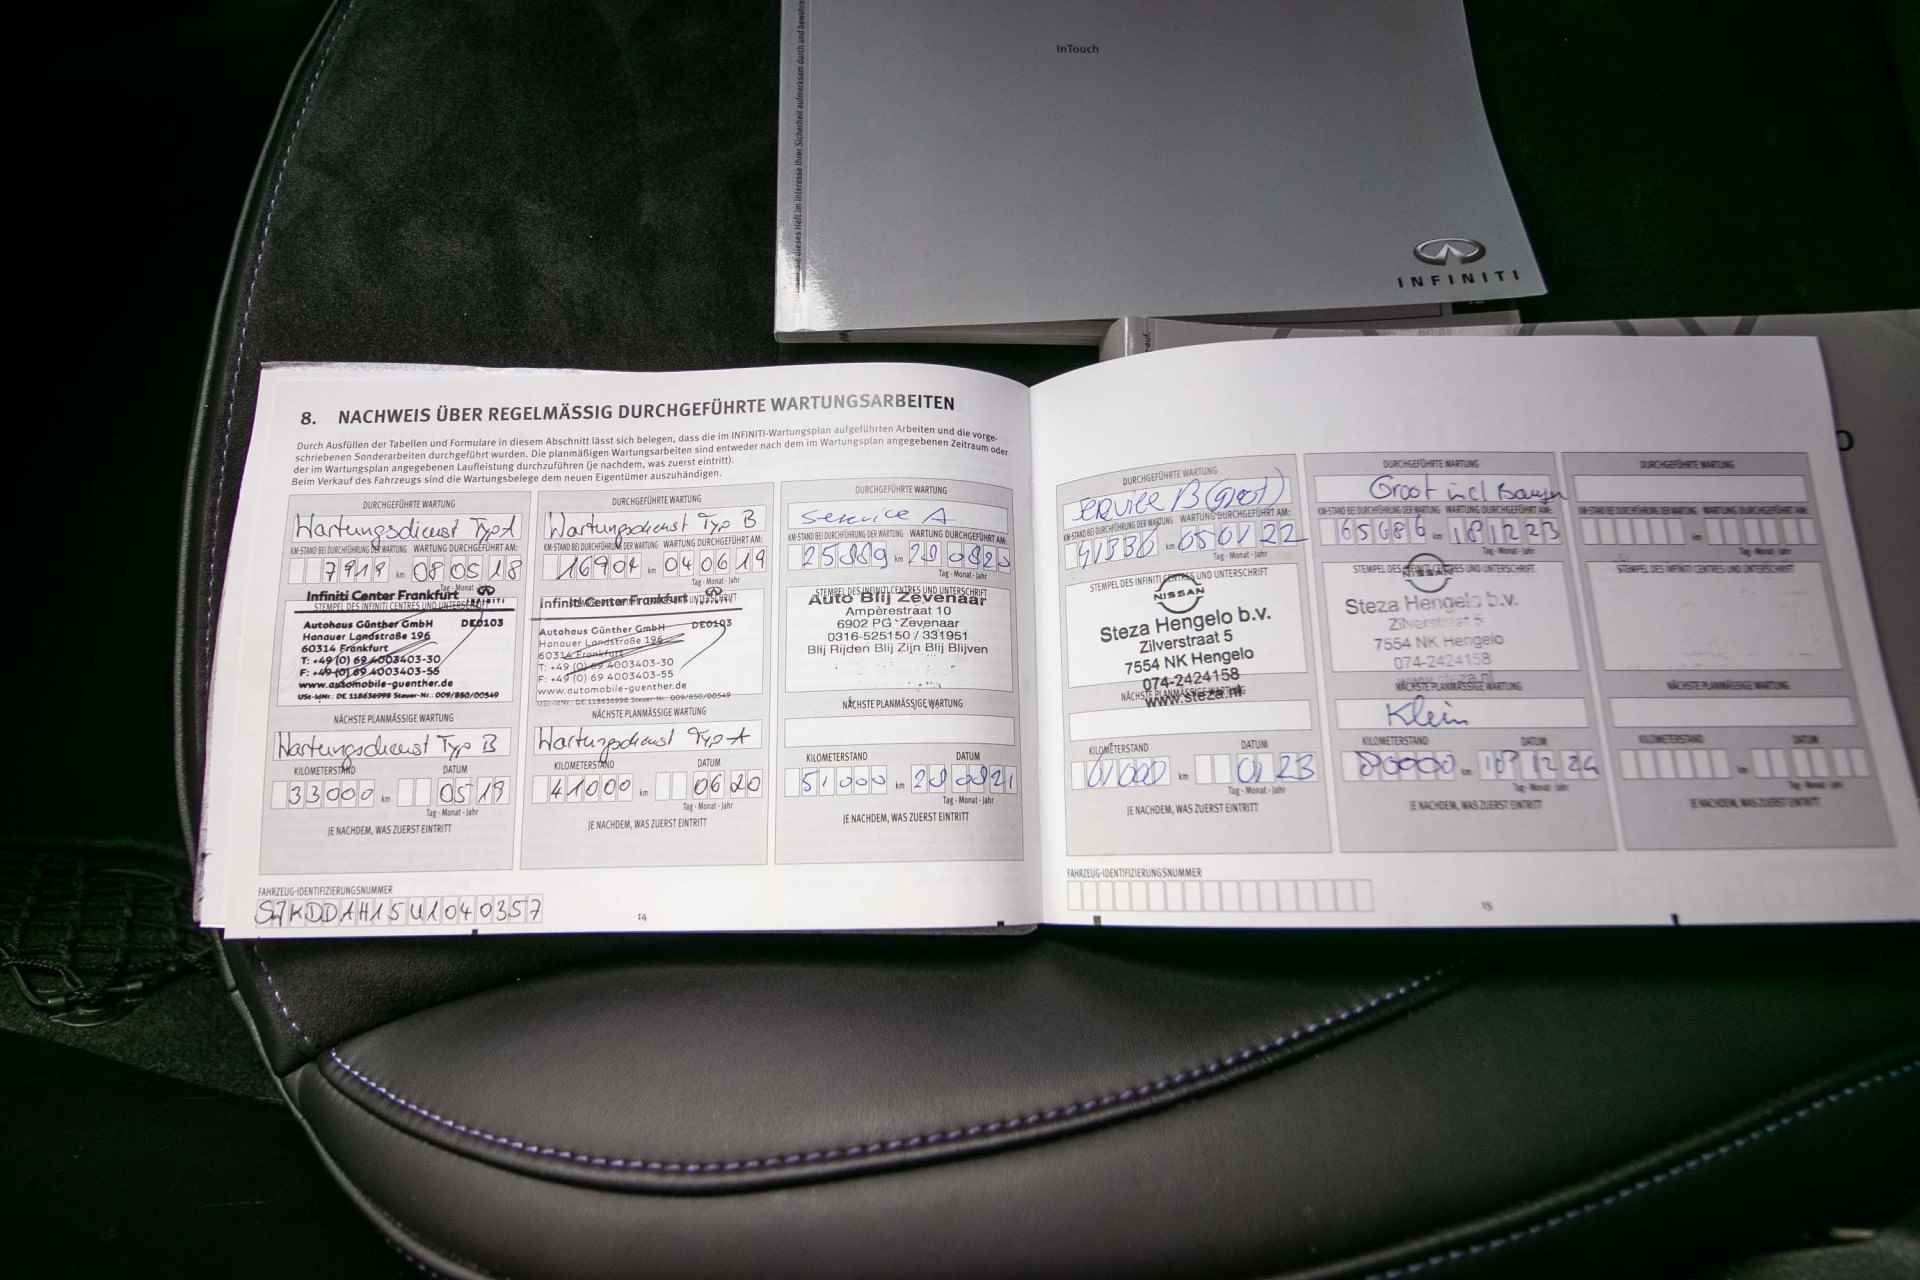 InTouch
INFINITI
8. NACHWEIS ÜBER REGELMÄSSIG DURCHGEFÜHRTE WARTUNGSARBEITEN
Durch Ausfüllen der Tabellen und Formulare in diesem Abschnitt lässt sich belegen, dass die im INFINITI-Wartungsplan aufgeführten Arbeiten und die vorge-
schriebenen Sonderarbeiten durchgeführt wurden. Die planmäßigen Wartungsarbeiten sind entweder nach dem im Wartungsplan angegebenen Zeitraum oder
der im Wartungsplan angegebenen Laufleistung durchzuführen (je nachdem, was zuerst eintritt).
Beim Verkauf des Fahrzeugs sind die Wartungsbelege dem neuen Eigentümer auszuhändigen.
DURCHGEFÜHRTE WARTUNG
Wartungsdienst Typ A
KM-STAND BEI DURCHFÜHRUNG DER WARTUNG WARTUNG DURCHGEFÜHRT AM:
7919 km 080518
Tag - Monat - Jahr
Infiniti Center Frankfurt
INFINITI
STEMPEL DES INFINITI CENTRES UND UNTERSCHRIFT
Autohaus Günther GmbH DE0103
Hanauer Landstraße 196
60314 Frankfurt
T: +49 (0) 69 4003403-30
F: +49 (0) 69 4003403-55
www.automobile-guenther.de
USt-IdNr.: DE 118636998 Steuer-Nr.: 009/850/00549
NÄCHSTE PLANMÄSSIGE WARTUNG
Wartungsdienst Typ B
KILOMETERSTAND DATUM
33000 km 0519
Tag - Monat - Jahr
JE NACHDEM, WAS ZUERST EINTRITT
DURCHGEFÜHRTE WARTUNG
Wartungsdienst Typ B
KM-STAND BEI DURCHFÜHRUNG DER WARTUNG WARTUNG DURCHGEFÜHRT AM:
16904 km 040619
Tag - Monat - Jahr
Infiniti Center Frankfurt
Autohaus Günther GmbH DE0103
Hanauer Landstraße 196
60314 Frankfurt
T: +49 (0) 69 4003403-30
F: +49 (0) 69 4003403-55
www.automobile-guenther.de
USt-IdNr.: DE 118636998 Steuer-Nr.: 009/850/00549
NÄCHSTE PLANMÄSSIGE WARTUNG
Wartungsdienst Typ A
KILOMETERSTAND DATUM
41000 km 0620
Tag - Monat - Jahr
JE NACHDEM, WAS ZUERST EINTRITT
DURCHGEFÜHRTE WARTUNG
Service A
KM-STAND BEI DURCHFÜHRUNG DER WARTUNG WARTUNG DURCHGEFÜHRT AM:
25889 km 280820
Tag - Monat - Jahr
STEMPEL DES INFINITI CENTRES UND UNTERSCHRIFT
Auto Blij Zevenaar
Ampèrestraat 10
6902 PG Zevenaar
0316-525150 / 331951
Blij Rijden Blij Zijn Blij Blijven
NÄCHSTE PLANMÄSSIGE WARTUNG
KILOMETERSTAND DATUM
51000 km 280821
Tag - Monat - Jahr
JE NACHDEM, WAS ZUERST EINTRITT
FAHRZEUG-IDENTIFIZIERUNGSNUMMER
SJKDDAH15U1040357
14
DURCHGEFÜHRTE WARTUNG
Service B (Groot)
KM-STAND BEI DURCHFÜHRUNG DER WARTUNG WARTUNG DURCHGEFÜHRT AM:
41336 km 050122
Tag - Monat - Jahr
STEMPEL DES INFINITI CENTRES UND UNTERSCHRIFT
NISSAN
Steza Hengelo b.v.
Zilverstraat 5
7554 NK Hengelo
074-2424158
www.steza.nl
NÄCHSTE PLANMÄSSIGE WARTUNG
KILOMETERSTAND DATUM
61000 km 0123
Tag - Monat - Jahr
JE NACHDEM, WAS ZUERST EINTRITT
DURCHGEFÜHRTE WARTUNG
Groot incl
KM-STAND BEI DURCHFÜHRUNG DER WARTUNG WARTUNG DURCHGEFÜHRT AM:
65686 km 181223
Tag - Monat - Jahr
STEMPEL DES INFINITI CENTRES UND UNTERSCHRIFT
NISSAN
Steza Hengelo b.v.
Zilverstraat 5
7554 NK Hengelo
074-2424158
www.steza.nl
NÄCHSTE PLANMÄSSIGE WARTUNG
Klein
KILOMETERSTAND DATUM
80000 km 181224
Tag - Monat - Jahr
JE NACHDEM, WAS ZUERST EINTRITT
DURCHGEFÜHRTE WARTUNG
KM-STAND BEI DURCHFÜHRUNG DER WARTUNG WARTUNG DURCHGEFÜHRT AM:
km
Tag - Monat - Jahr
STEMPEL DES INFINITI CENTRES UND UNTERSCHRIFT
NÄCHSTE PLANMÄSSIGE WARTUNG
KILOMETERSTAND DATUM
km
Tag - Monat - Jahr
JE NACHDEM, WAS ZUERST EINTRITT
FAHRZEUG-IDENTIFIZIERUNGSNUMMER
15